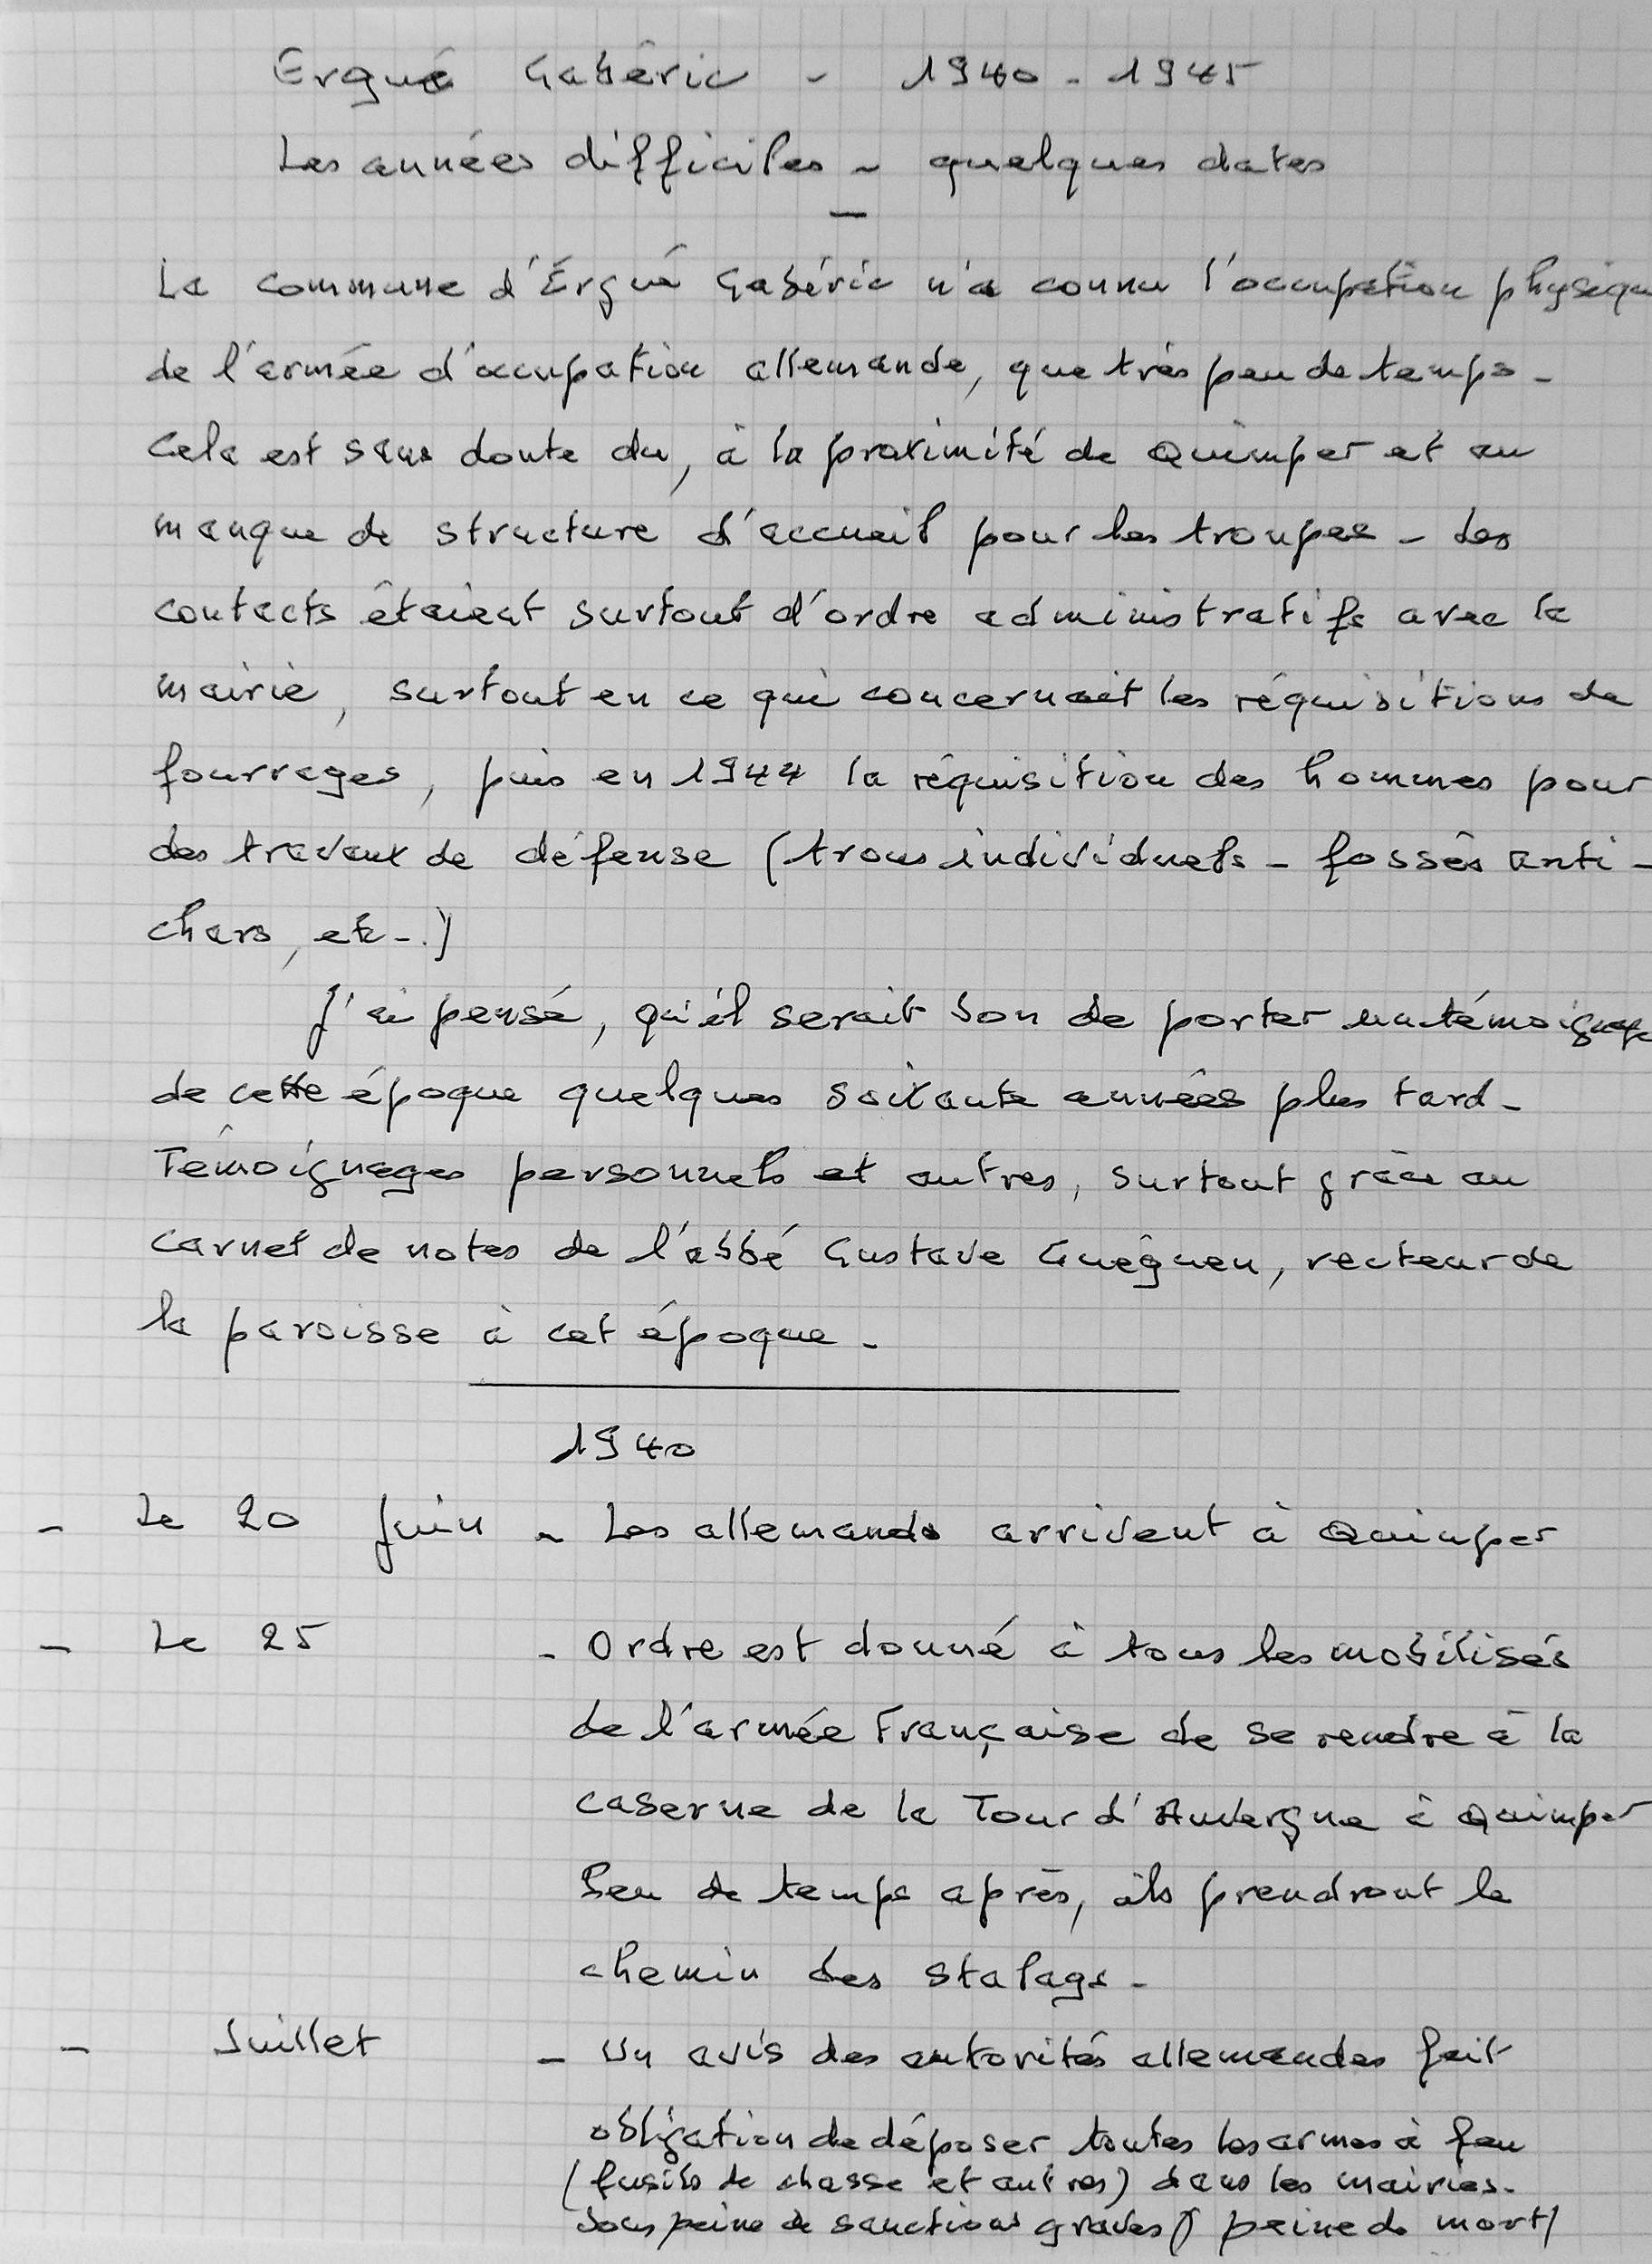 Ergué Gabéric - 1940 - 1945
Les années difficiles - quelques dates
La commune d'Ergué Gabéric n'a connu l'occupation physique
de l'armée d'occupation allemande, que très peu de temps -
Cela est sans doute du, à la proximité de Quimper et au
manque de structure d'accueil pour les troupes - Les
contacts étaient surtout d'ordre administratifs avec la
mairie, surtout en ce qui concernait les réquisitions de
fourrages, puis en 1944 la réquisition des hommes pour
des travaux de défense (trous individuels - fossés anti-
chars, etc-.)
J'ai pensé, qu'il serait bon de porter un témoignage
de cette époque quelques soixante années plus tard -
Témoignages personnels et autres, surtout grâce au
carnet de notes de l'abbé Gustave Guéguen, recteur de
la paroisse à cet époque -
1940
- Le 20 Juin - Les allemands arrivent à Quimper
- Le 25 - Ordre est donné à tous les mobilisés
de l'armée Française de se rendre à la
caserne de la Tour d'Auvergne à Quimper
Peu de temps après, ils prendront le
chemin des Stalags -
- Juillet - Un avis des autorités allemandes fait
obligation de déposer toutes les armes à feu
(fusils de chasse et autres) dans les mairies -
sous peine de sanctions graves (peine de mort)